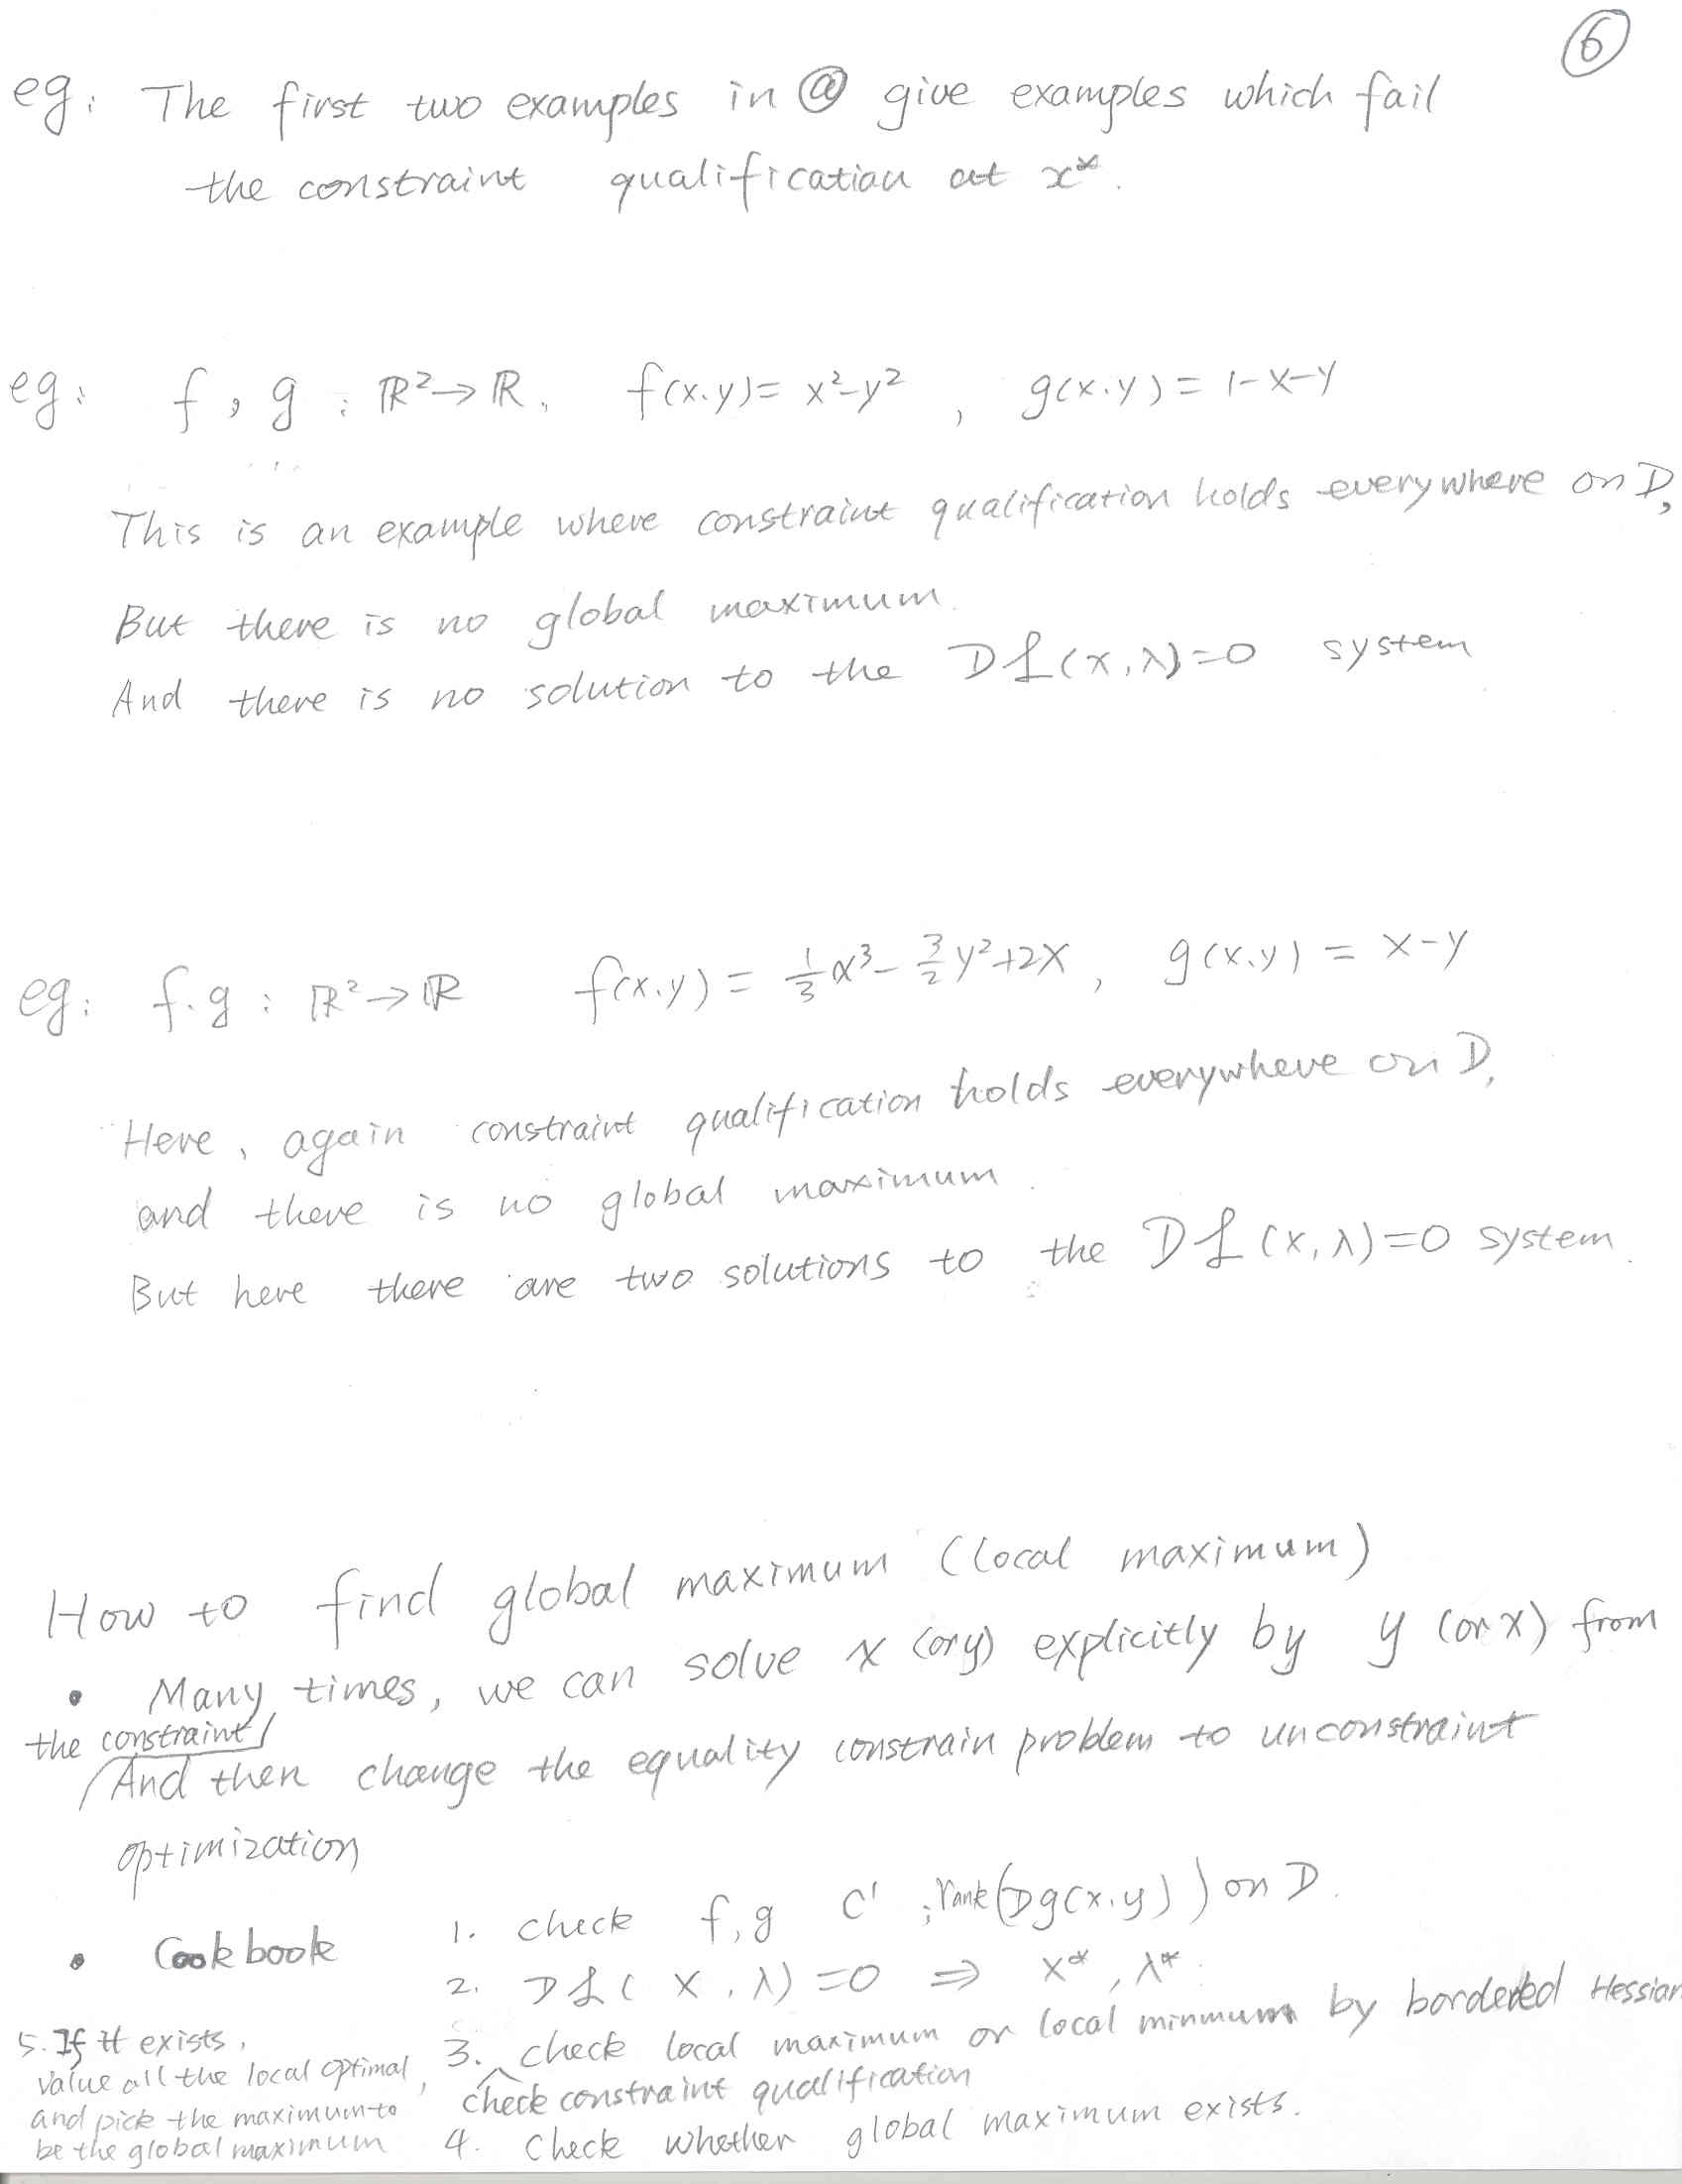 ⑥
eg: The first two examples in ⓐ give examples which fail
the constraint qualification at x*.
eg: f, g : ℝ²→ℝ, f(x,y)= x²-y² , g(x,y) = 1-x-y
This is an example where constraint qualification holds everywhere on D,
But there is no global maximum.
And there is no solution to the Dℒ(x,λ)=0 system
eg: f.g : ℝ²→ℝ f(x,y) = 1/3 x³ - 3/2 y² +2x , g(x,y) = x-y
Here, again constraint qualification holds everywhere on D,
and there is no global maximum.
But here there are two solutions to the Dℒ(x,λ)=0 system.
How to find global maximum (local maximum)
• Many times, we can solve x (or y) explicitly by y (or x) from
the constraint
And then change the equality constrain problem to unconstraint
optimization
• Cookbook
1. check f,g C¹ ; rank(Dg(x,y)) on D.
2. Dℒ(x,λ)=0 ⇒ x*, λ*.
3. check local maximum or local minmum by bordered Hessian
check constraint qualification
4. Check whether global maximum exists.
5. If it exists,
value all the local optimal,
and pick the maximum to
be the global maximum